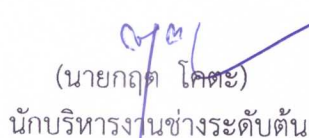 (นายกฤต โคตะ)
นักบริหารงานช่างระดับต้น